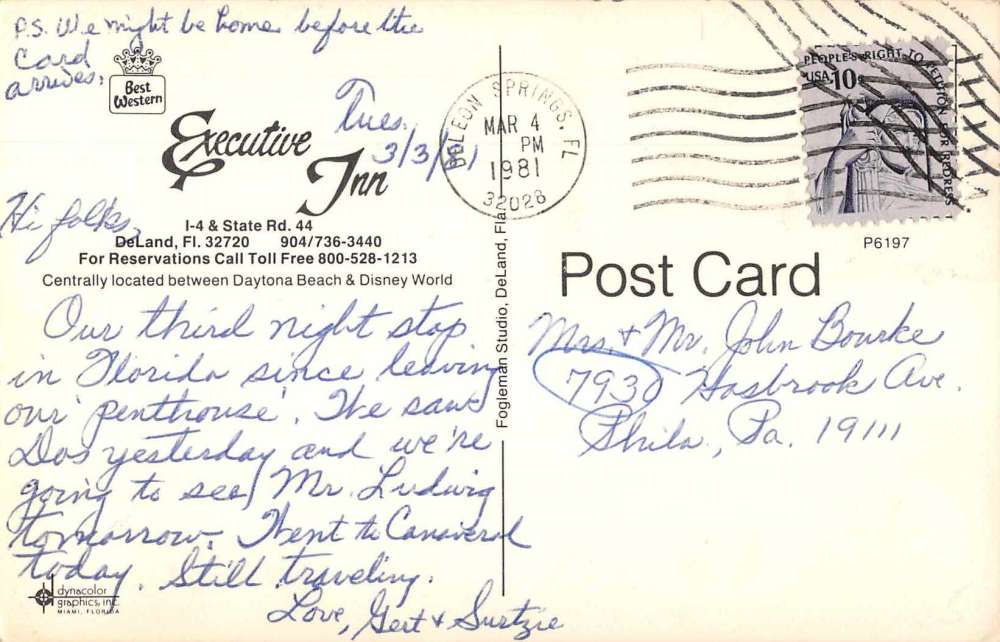 P.S. We might be home before the
Card
arrives.
Best
Western
Executive
Inn
Tues.
3/3/81
I-4 & State Rd. 44
DeLand, Fl. 32720 904/736-3440
For Reservations Call Toll Free 800-528-1213
Centrally located between Daytona Beach & Disney World
Hi folks,
Our third night stop
in Florida since leaving
our 'penthouse'. We saw
Dos yesterday and we're
going to see Mr. Ludwig
tomorrow. Went to Canaveral
today. Still traveling.
Love, Gert &
dynacolor
graphics, inc.
MIAMI, FLORIDA
Fogleman Studio, DeLand, Fla.
DELEON SPRINGS, FL
MAR 4
PM
1981
32028
PEOPLE'S RIGHT TO PETITION FOR REDRESS
USA 10c
P6197
Post Card
Mrs. + Mr. John Bourke
7930 Hasbrook Ave.
Phila., Pa. 19111